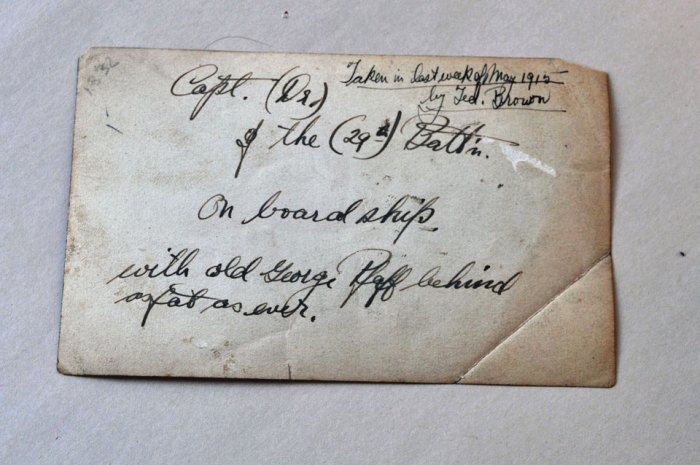 1832
Taken in last week of May 1915
by Ted. Brown
Capt. (Dr.)
of the (29th) Batt'n.
On board ship
with old George Pfaff behind
as fat as ever.